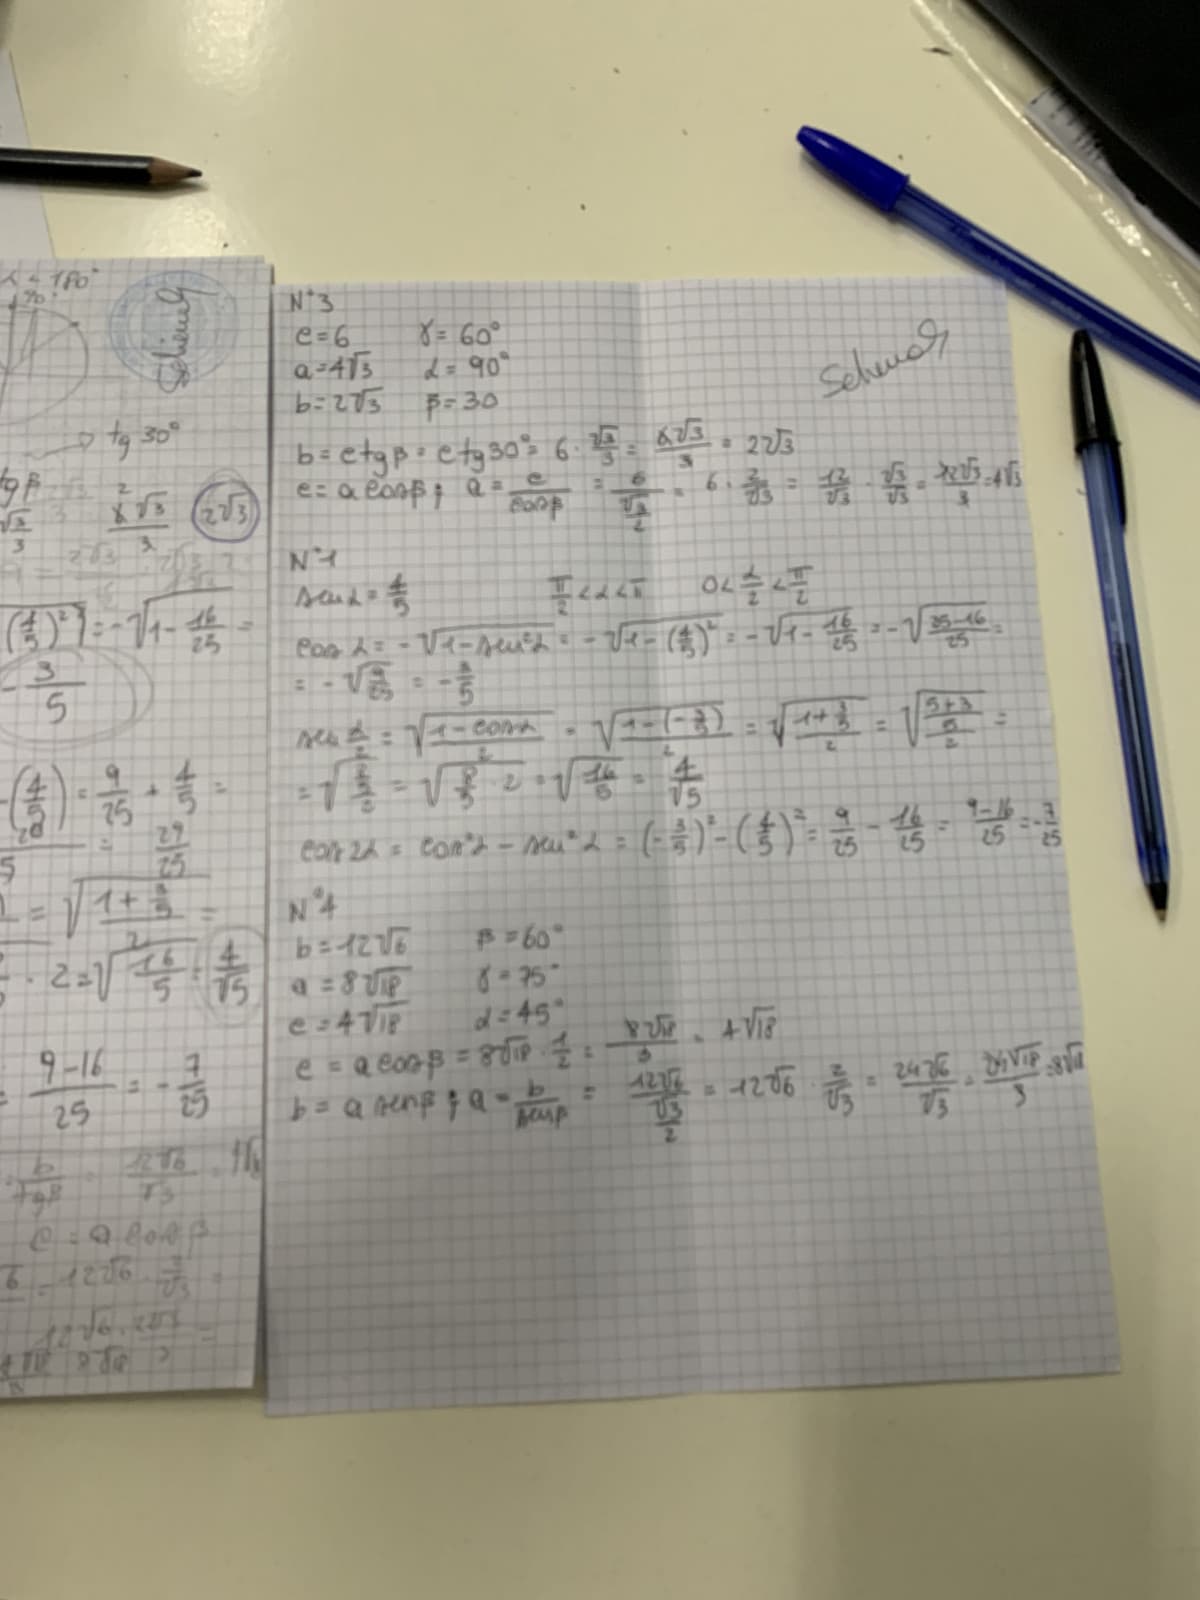 α = 180°
tg 30°
tg β
√3/3 6√3/3 2√3
(4/5)²) = -√(1 - 16/25) =
-3/5
-(4/5) = 9/25 + 4/5 =
= 29/25
= √((1 + 3/5)/2) =
· 2 = √(16/5) = 4/√5
(9-16)/25 = -7/25
b/tgβ = 12√6/√3
c = a cos β
N°3
c = 6 γ = 60°
a = 4√3 α = 90°
b = 2√3 β = 30
b = c tg β = c tg 30° = 6 · √3/3 = 6√3/3 = 2√3
c = a cos β ; a = c/cosβ = 6/(√3/2) = 6 · 2/√3 = 12/√3 · √3/√3 = 12√3/3 = 4√3
N°1
sen α = 4/5 π/2 < α < π 0 < α/2 < π/2
cos α = -√(1 - sen²α) = -√(1 - (4/5)²) = -√(1 - 16/25) = -√((25-16)/25) =
= -√(9/25) = -3/5
sen α/2 = √((1 - cos α)/2) = √((1 - (-3/5))/2) = √((1 + 3/5)/2) = √(((5+3)/5)/2) =
= √((8/5)/2) = √(8/5 · 2) = √(16/5) = 4/√5
cos 2α = cos²α - sen²α = (-3/5)² - (4/5)² = 9/25 - 16/25 = (9-16)/25 = -7/25
N°4
b = 12√6 β = 60°
a = 8√18 γ = 75°
c = 4√18 α = 45°
c = a cos β = 8√18 · 1/2 = 4√18
b = a sen β ; a = b/senβ = 12√6/(√3/2) = 12√6 · 2/√3 = 24√6/√3 = 24√18/3 = 8√18